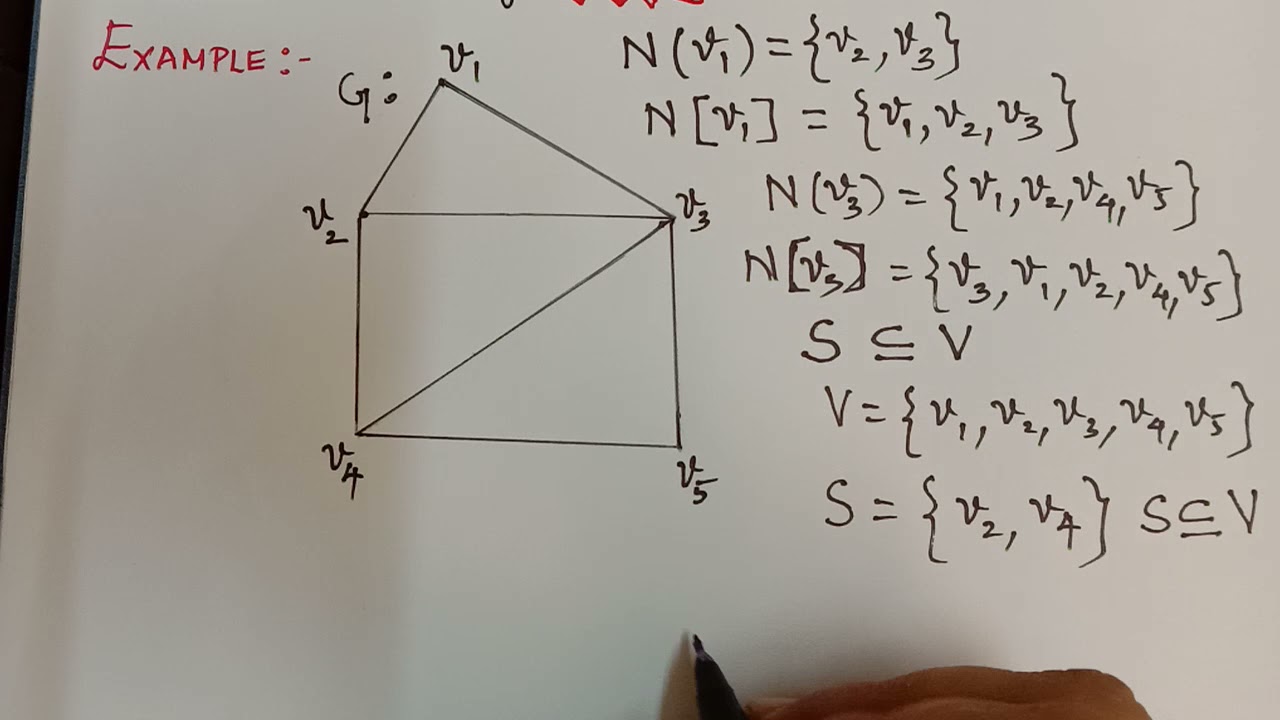 EXAMPLE:-
G:
v₁
v₂
v₃
v₄
v₅
N(v₁) = {v₂, v₃}
N[v₁] = {v₁, v₂, v₃}
N(v₃) = {v₁, v₂, v₄, v₅}
N[v₃] = {v₃, v₁, v₂, v₄, v₅}
S ⊆ V
V = {v₁, v₂, v₃, v₄, v₅}
S = {v₂, v₄} S ⊆ V